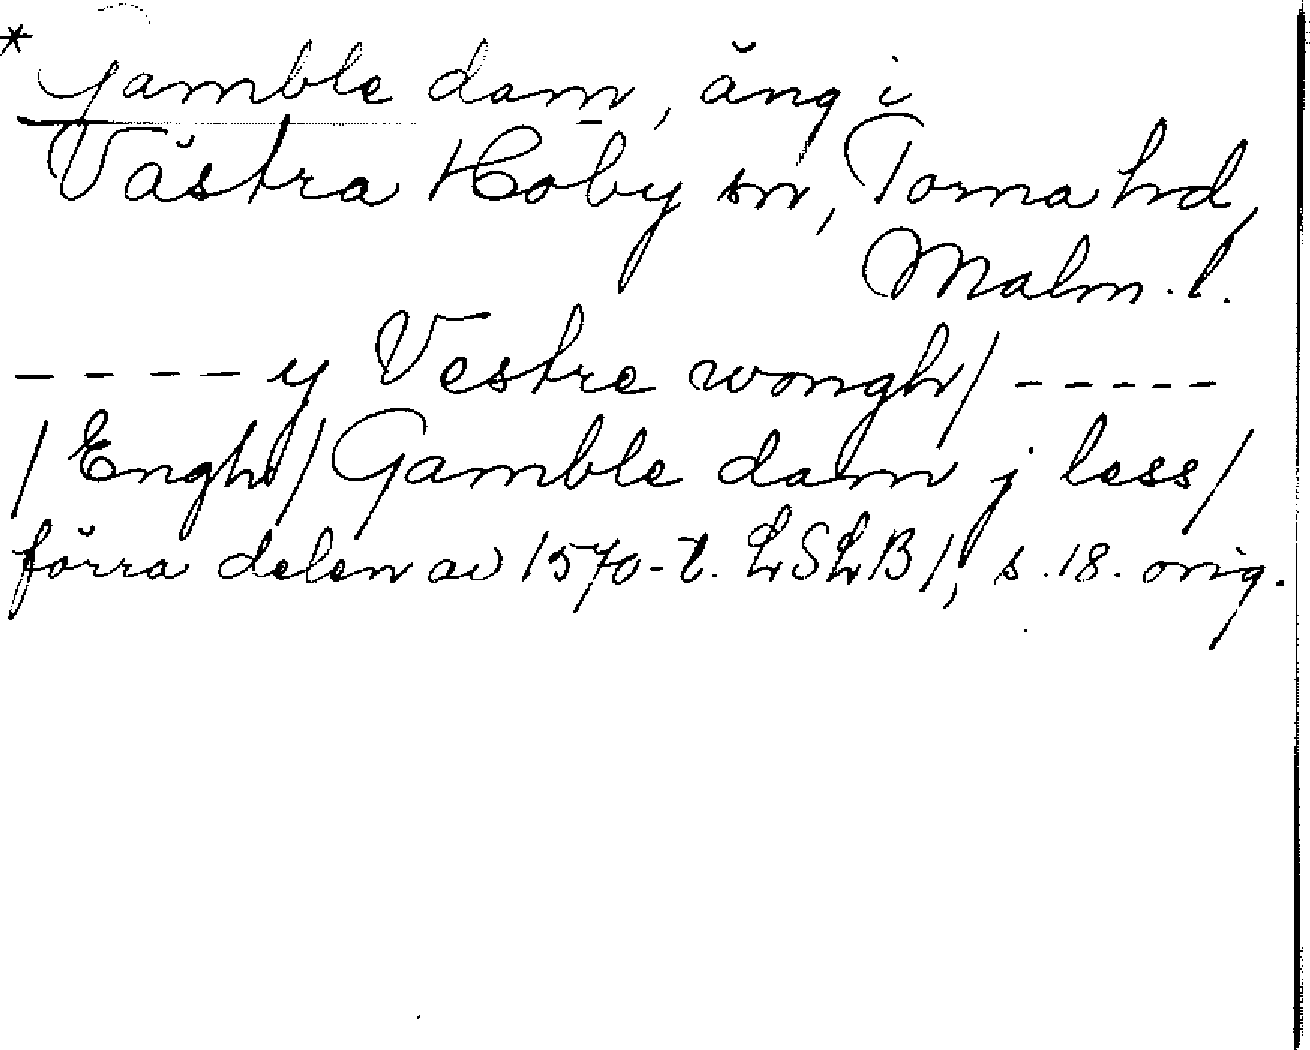 * gamble dam, äng i
Västra Hoby sn, Torna hd,
Malm. l.
---- y Vestre wongh/ -----
/Engh/ Gamble dam j less/
förra delen av 1570-t. LSLB/, s. 18. orig.